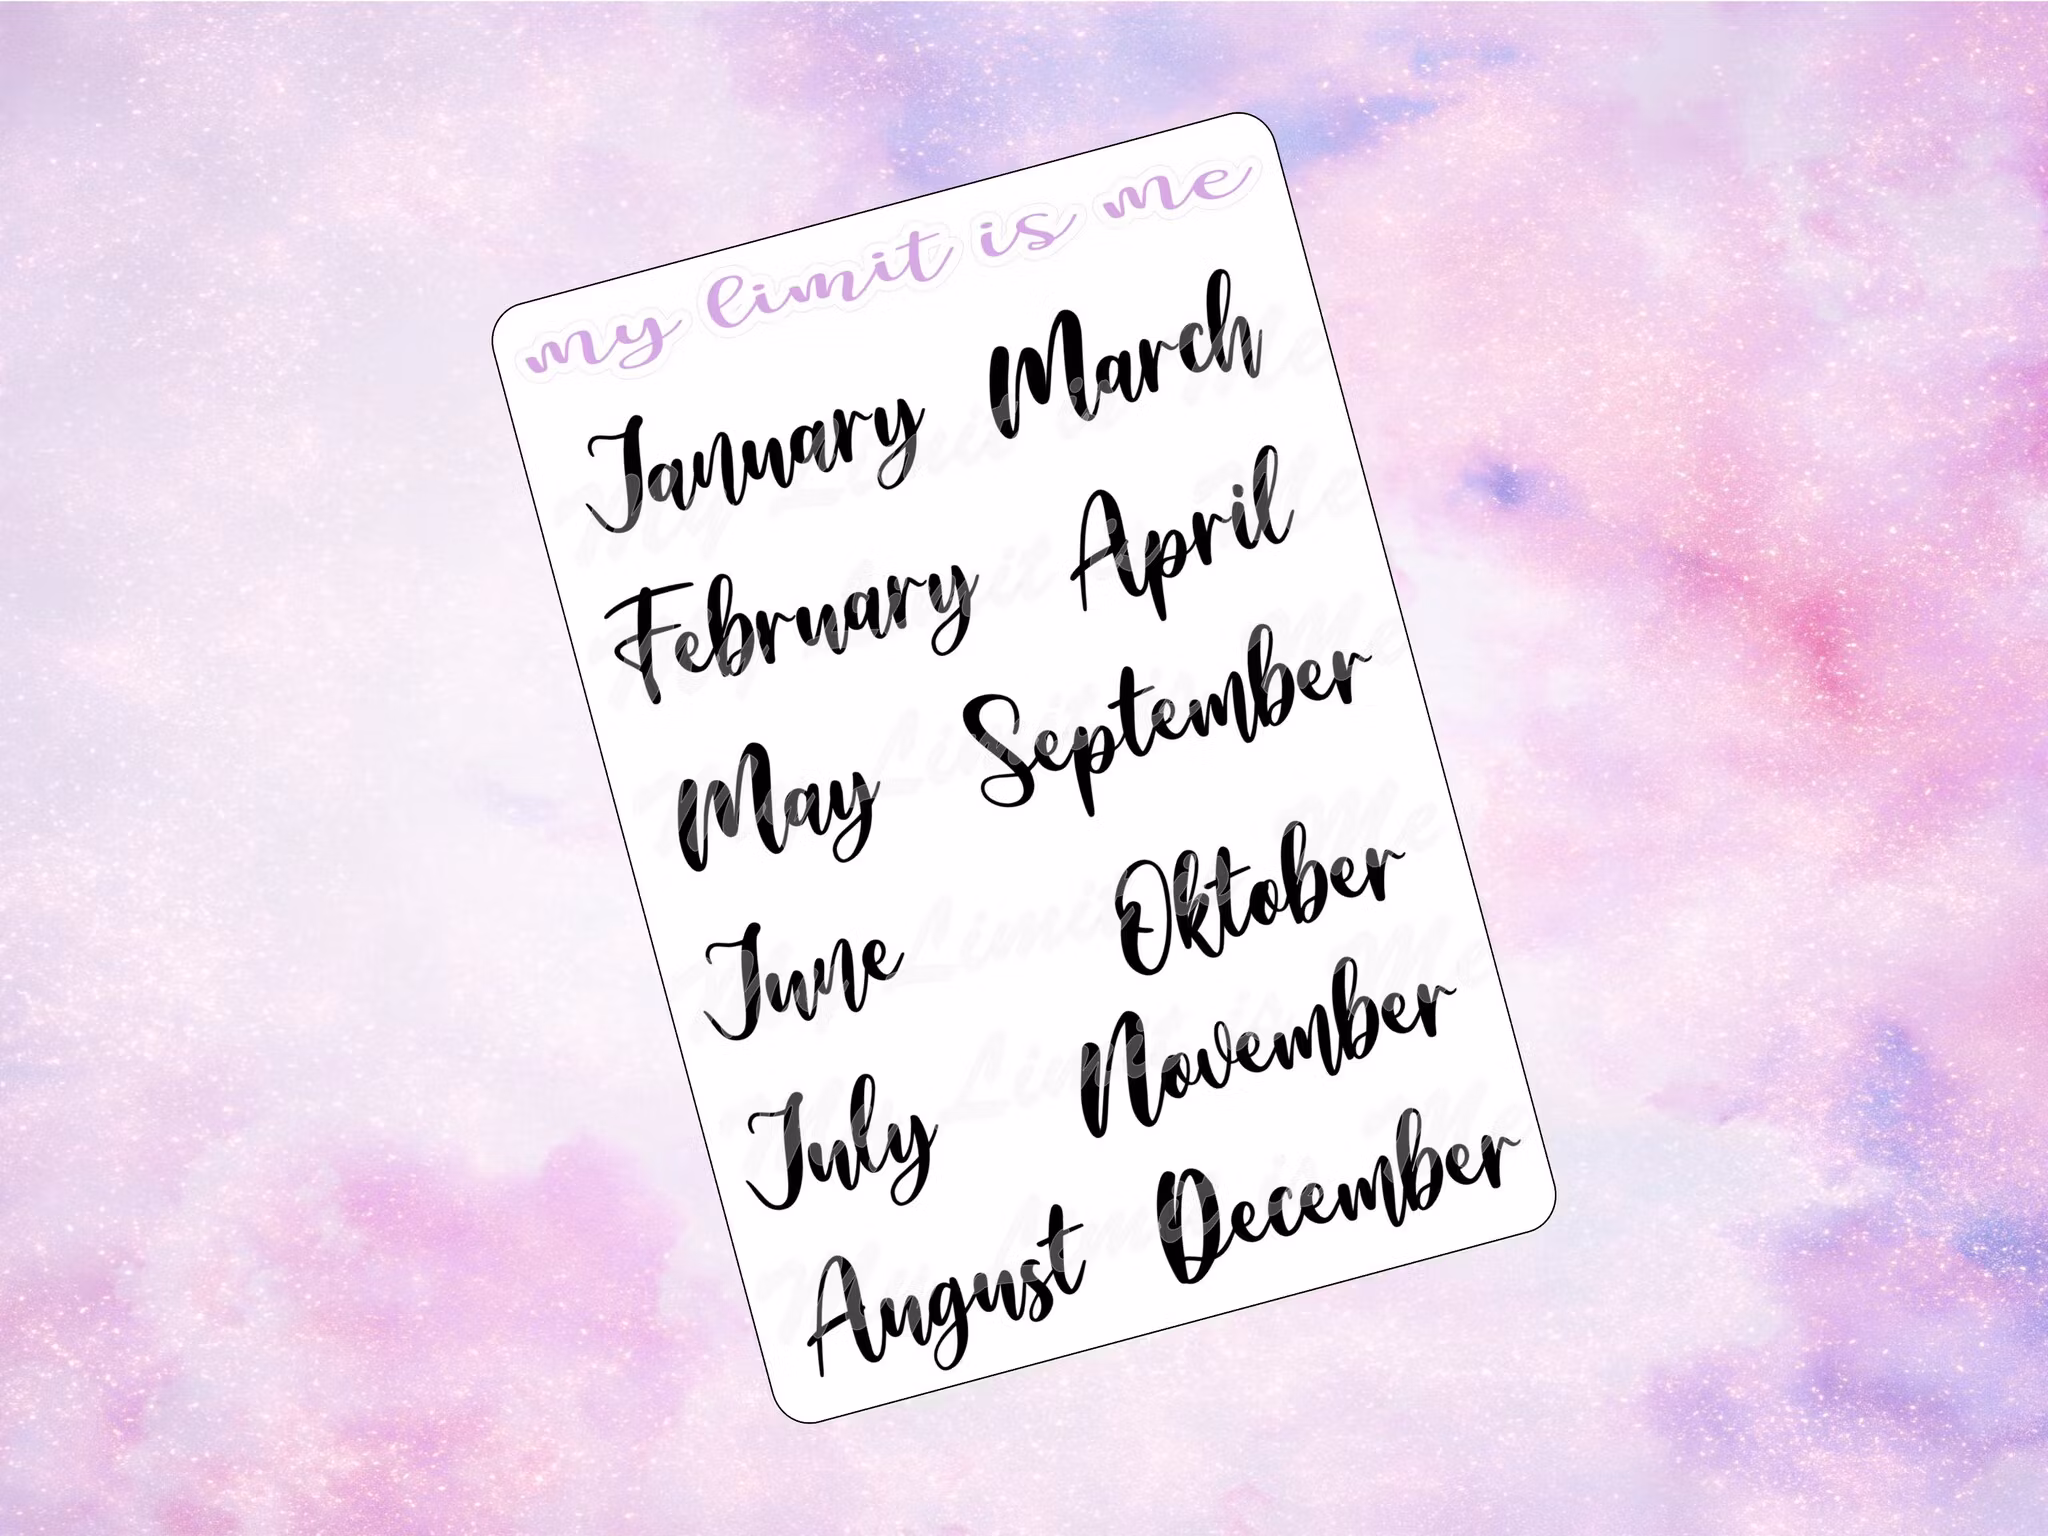 my limit is me
January March
February April
May September
June Oktober
July November
August December
My Limit is Me
My Limit is Me
My Limit is Me
My Limit is Me
My Limit is Me
My Limit is Me